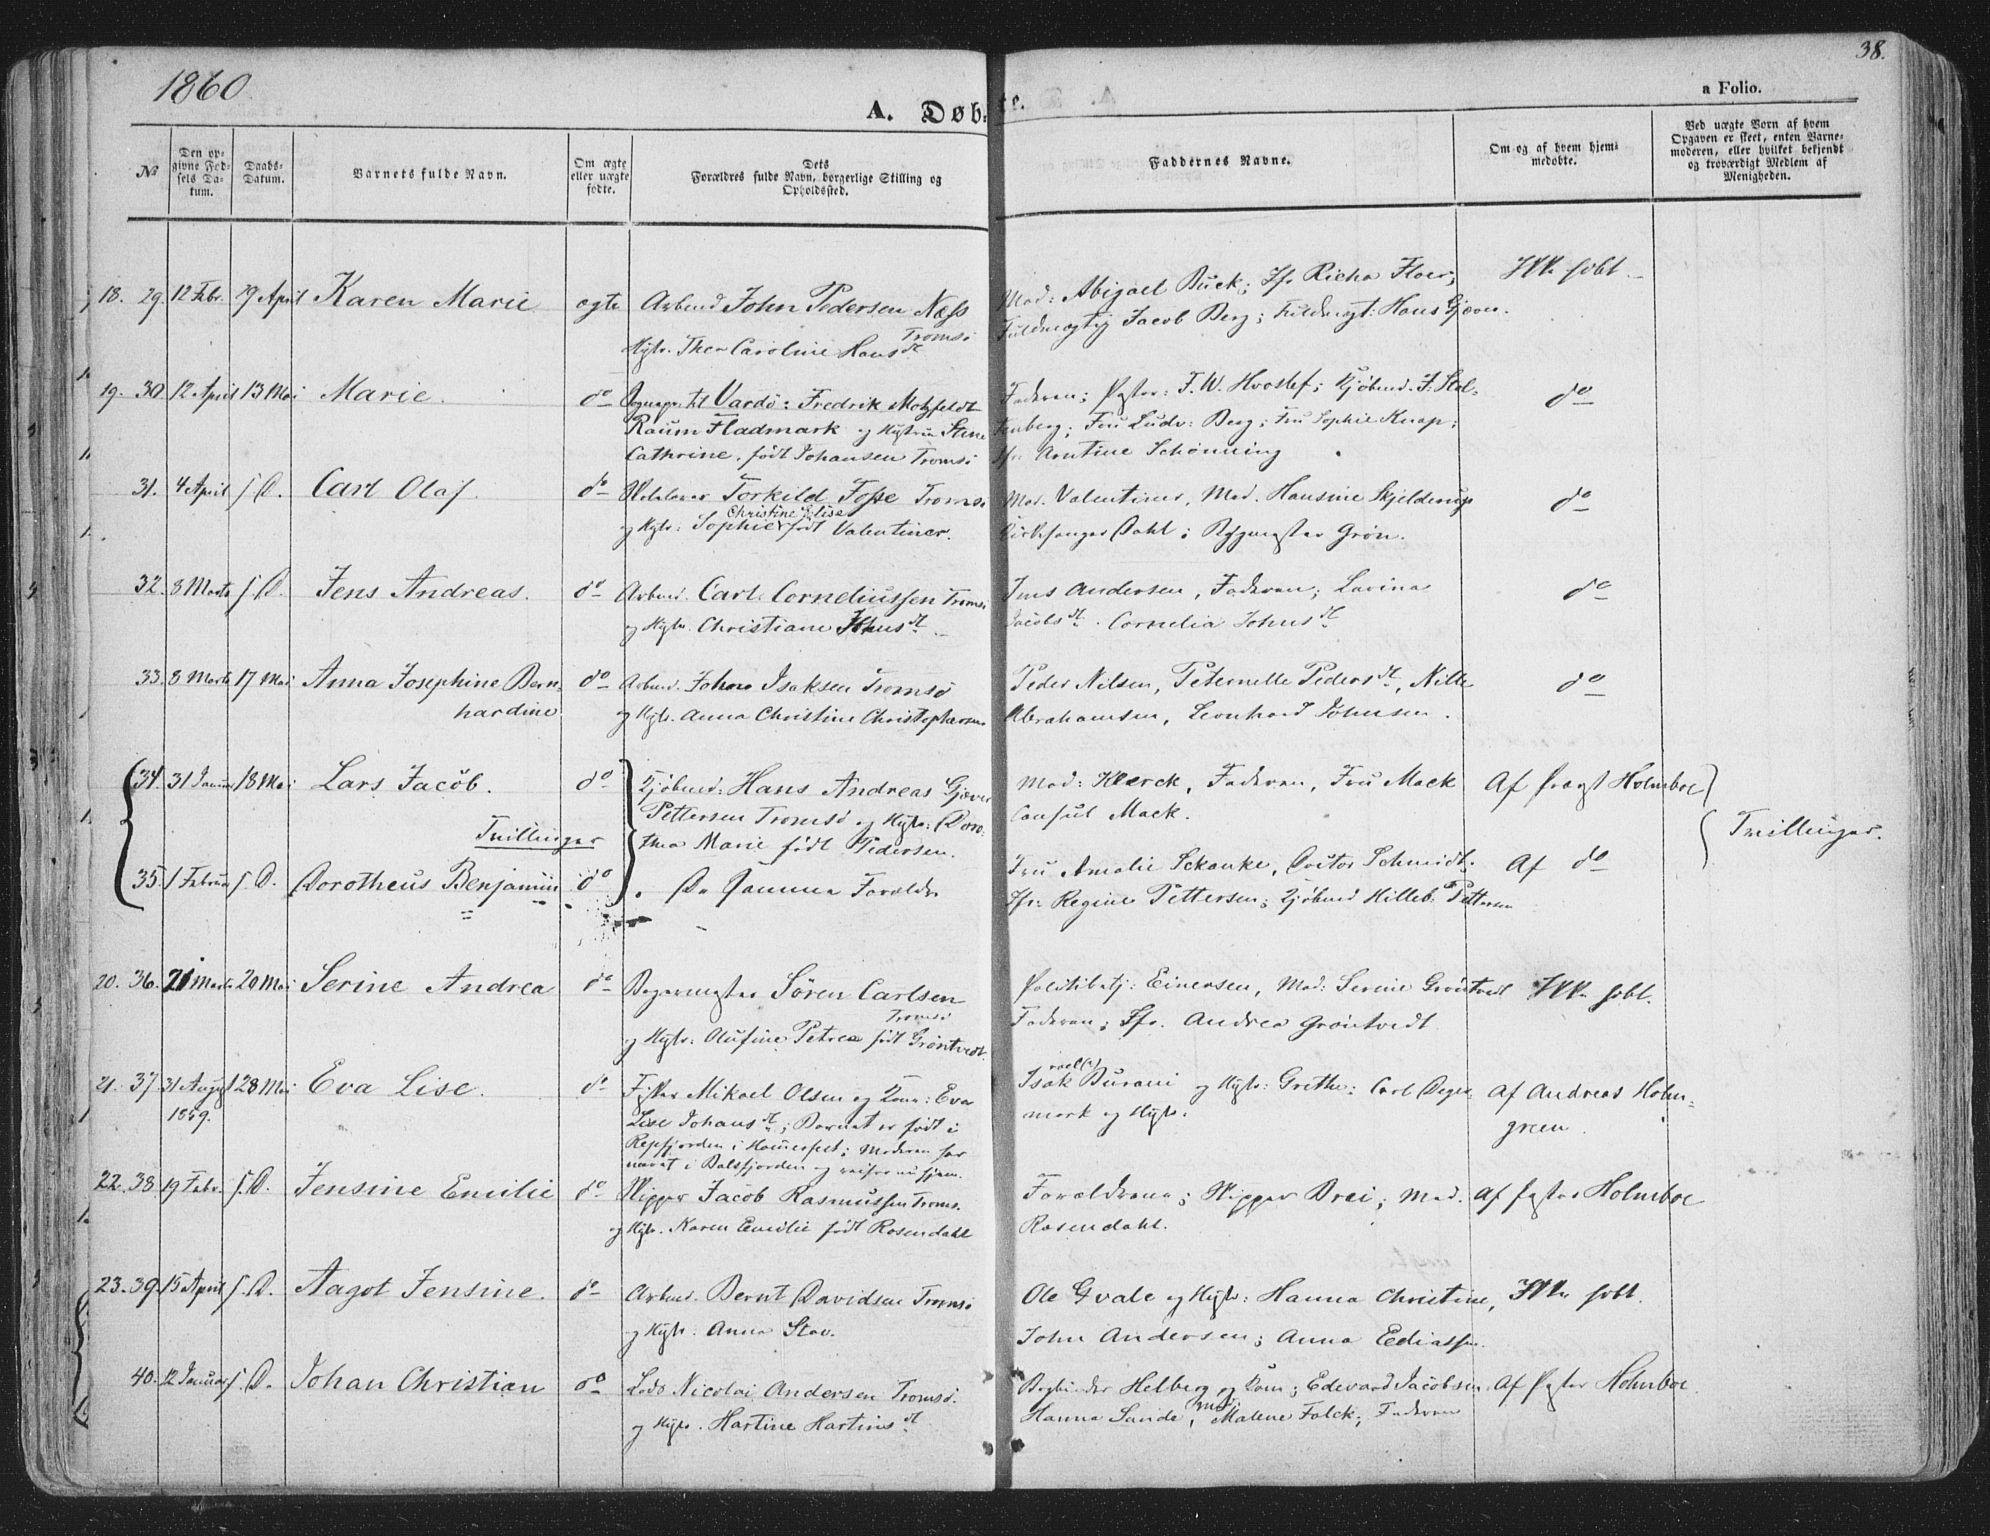 1860
38.
a Folio.
A. Døbte.
No
Den opgivne Fødsels Datum.
Daabs-Datum.
Barnets fulde Navn.
Om ægte eller uægte fødte.
Dets Forældres fulde Navn, borgerlige Stilling og Opholdssted.
Faddernes Navne.
Om og af hvem hjemmedøbte.
Ved uægte Børn af hvem Opgaven er skeet, enten Barnemoderen, eller hvilket bekjendt og troværdigt Medlem af Menigheden.
18. 29. 12 Febr. 9 April Karen Marie ægte Arbmd John Pedersen Næss
Tromsø
Thea Caroline Hansdt
Mad: Abigael Buck; Jfr Richa Floer;
Fuldmægtig Jacob Berg; Fuldmægt: Hans Gjæver.
Ikke
19. 30 12 April 13 Mai Marie. do Sognepr. til Vardø: Fredrik Motzfeldt
Raum Fladmark og Hustru Stine
Cathrine, født Johansen Tromsø
Faderen; Pastor: F. W. Hvoslef; Kjøbmd. F. Stol-
tenberg; Fru Ludv: Berg; Fru Sophie Knap;
Jfr: Arntine Schønning
do
31. 4 April s. D. Carl Olaf. do Torkild Fosse Tromsø
Christine Elise
og Hstr: Sophie født Valentiner.
Mad. Valentiner, Mad. Hansine Skjelderup
Kirkesanger Dahl; Grøn.
do
32. 8 Marts s. D. Jens Andreas. do Arbmd. Carl Corneliussen Tromsø
og Hstr. Christiane
Jens Andersen, Faderen; Lavina
Jacobsdt. Cornelia Johnsdt
do
33. 8 Marts 17 Mai Anna Josephine Bern-
hardine
do Arbmd. Johan Isaksen Tromsø
og Hstr. Anna Christine Christophersen
Peder Nilsen, Peternelle Pedersdt, Nille
Abrahamsen, Leonhard Johnsen.
do
34. 31 Januar 18 Mai Lars Jacob. do Kjøbmd: Hans Andreas Gjæver
Pettersen Tromsø og Hstr: Doro-
thea Marie født Pedersen.
Tvillinger
Mad: Klerck, Faderen, Fru Mack
Consul Mack.
Af Holmboe
Tvillinger.
35. 1 Februar s. D. Dorotheus Benjamin do De samme Forældre
Fru Amalie Schanke, Doctor Schmidt;
Jfr: Regine Pettersen; Kjøbmd Hilleb. Pettersen
Af do
20. 36. 21 Marts 20 Mai Serine Andrea do Bagermester Sören Carlsen
Tromsø
og Hstr: Olufine Petrea født Gröntvedt.
Politibetj: Einersen, Mad: Serine Gröntvedt
Faderen; Jfr. Andrea Gröntvedt
Ikke
21. 37. 31 August 28 Mai Eva Lise. do Fisker Mikael Olsen og Kone: Eva
1859.
Lise Johansdt; Barnet er født i
Repefjorden i Hammerfest; Moderen har
været i Balsfjorden og reiser nu hjem.
Isak Burani og Hstr: Grethe: Carl Deger-
mark og Hstr.
Af Andreas Holm-
green.
22. 38. 19 Febr. s. D. Jensine Emilie do Skipper Jacob Rasmussen Tromsø.
og Hstr. Karen Emilie født Rosendahl
Forældrene; Skipper Brei; Mad.
Rosendahl.
Af Pastor Holmboe
23. 39. 15 April s. D. Aagot Jensine. do Arbmd. Bernt Davidsen Tromsø
og Hstr: Anna Stav.
Ole Gvale og Hstr: Hanna Christine,
John Andersen; Anna
Ikke
40. 12 Januar s. D. Johan Christian do Lods Nicolai Andersen Tromsø.
og Hstr. Hartine Hartinsdt
Bogbinder Helberg og Kone; Edevard Jacobsen
Hanna Sande, Mad: Malene Falck; Faderen
Af Pastor Holmboe